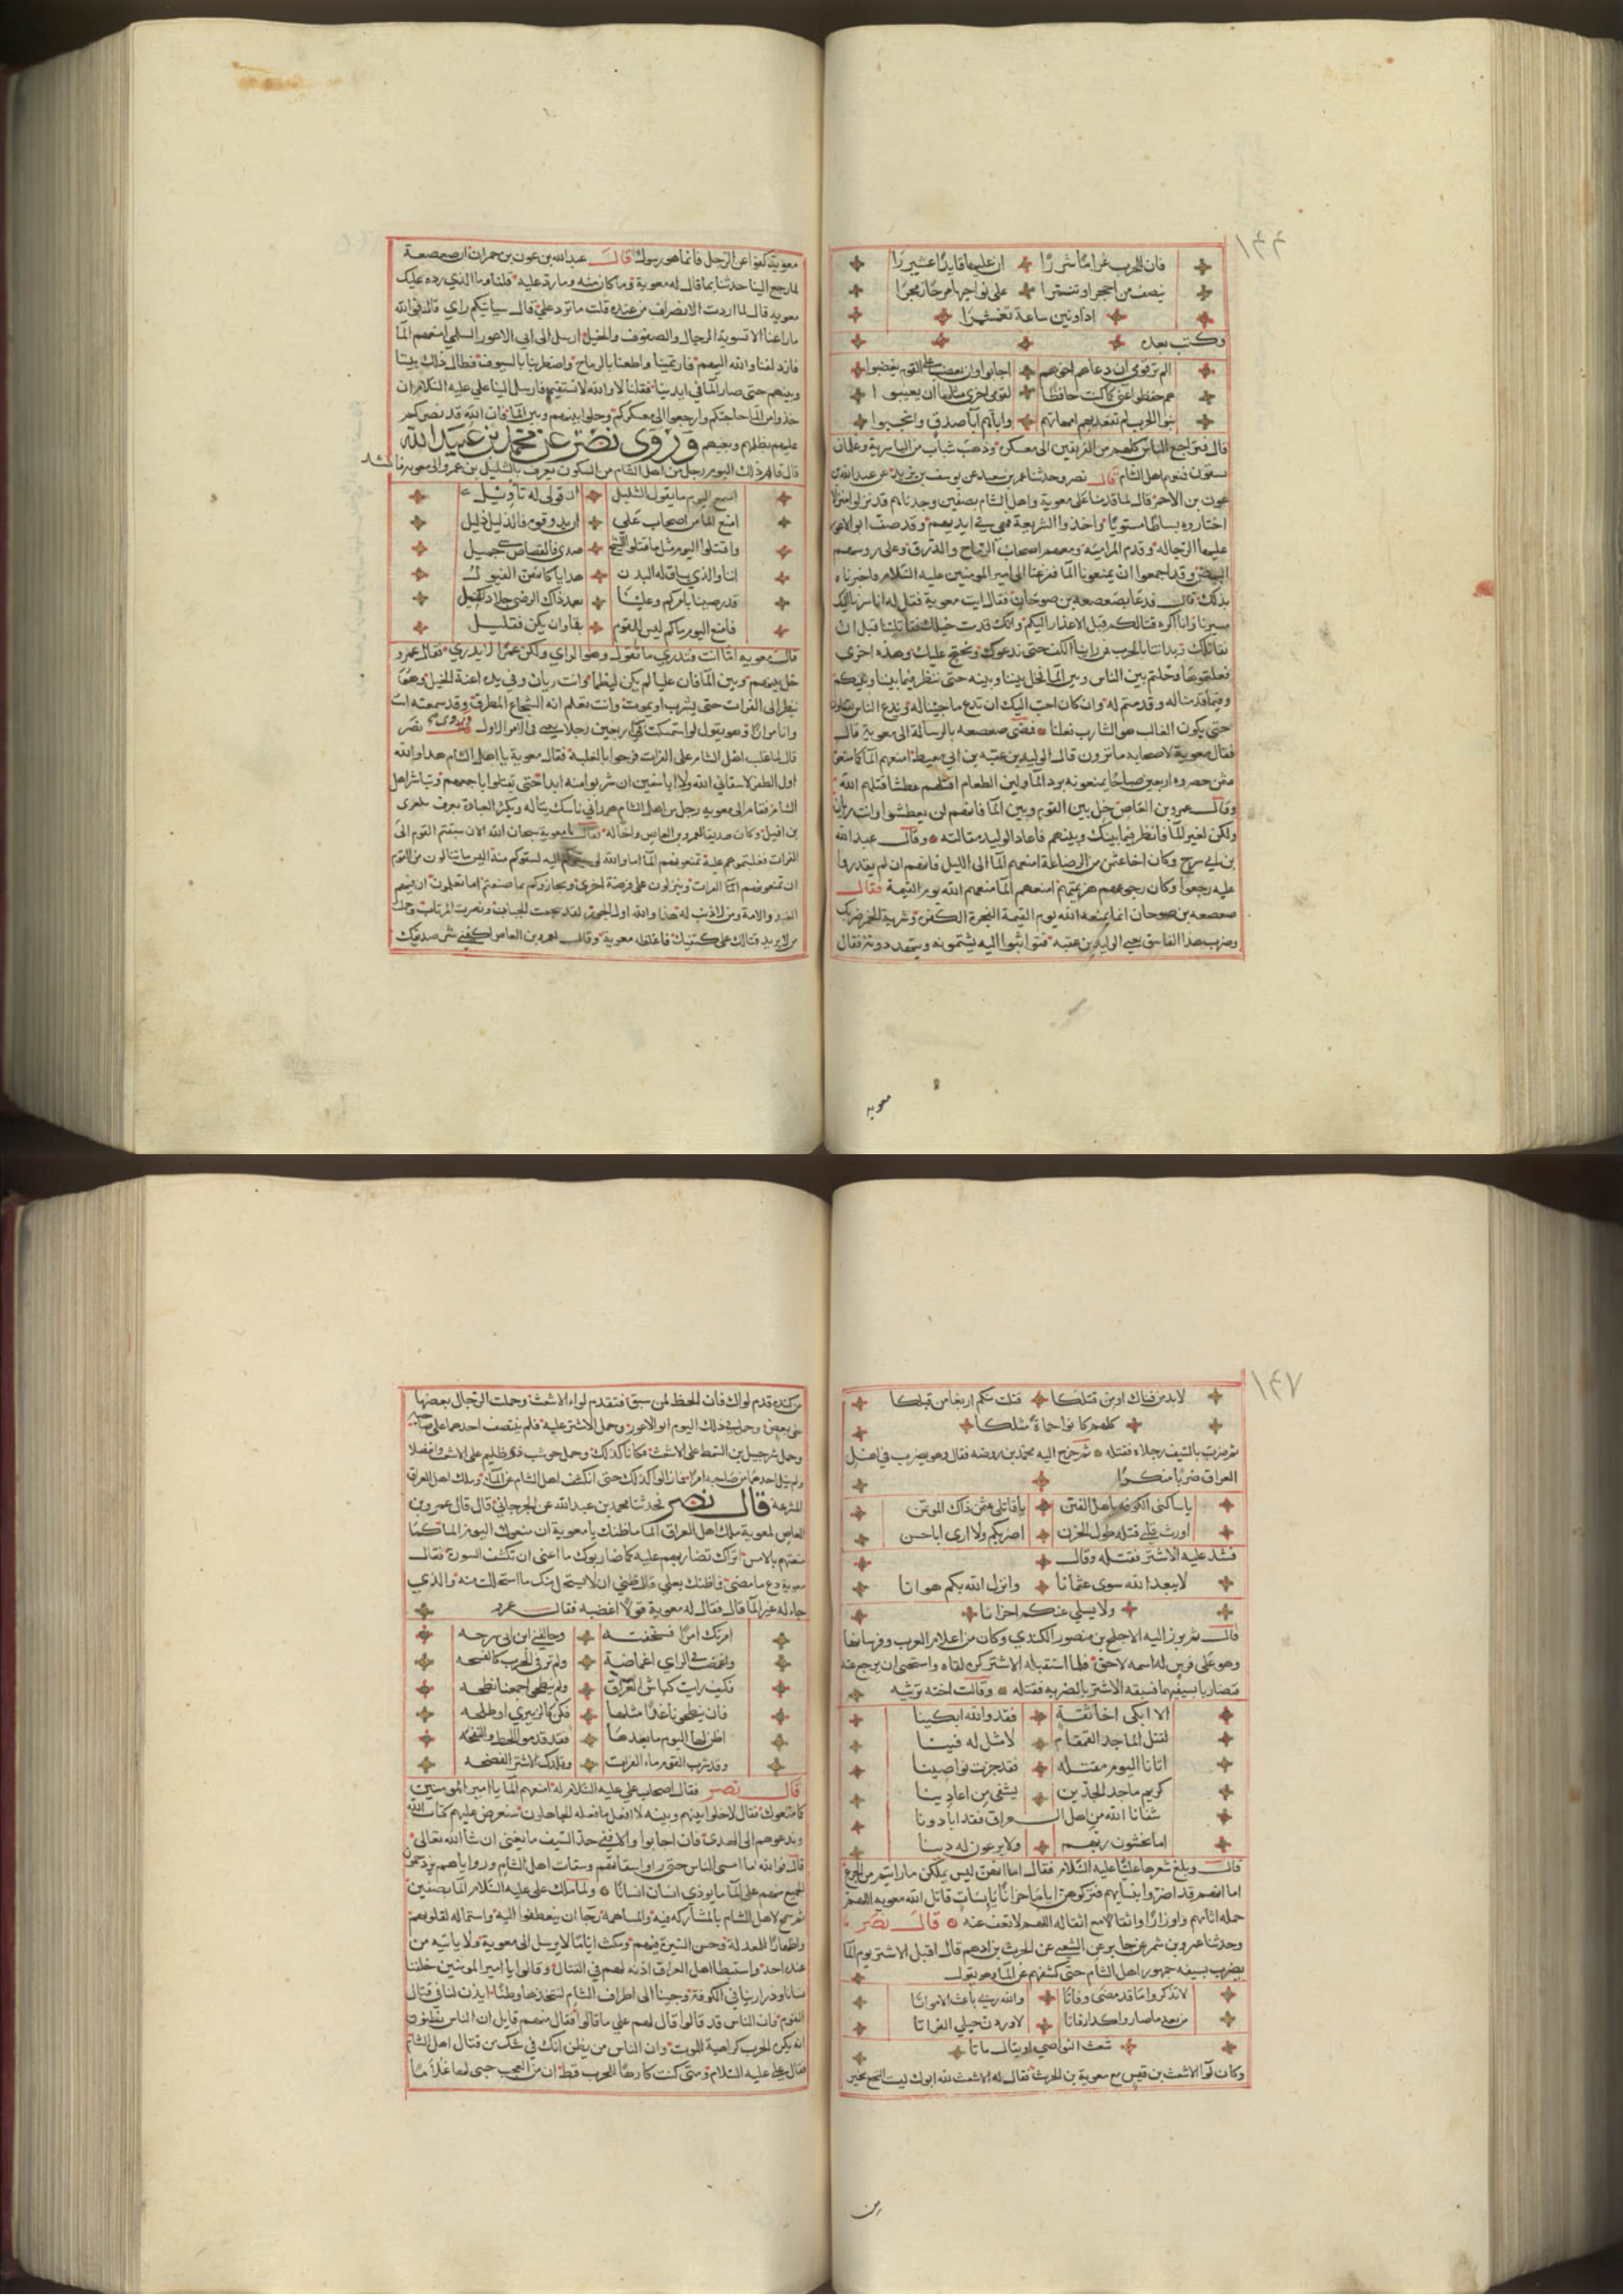 ١٤٤
فان للحرب غراما شررا ان عليها قايدا عشنزرا
ينصف من احجر او تنمرا على نواحيها مزجا زمجرا
اذا ونين ساعة تغشمرا
وكتب بعده
الم تر قومي ان دعاهم اخوهم اجابوا وان يغضب على القوم يغضبوا
هم حفظوا غيبي كما كنت حافظا لقومي اخرى مثلها ان يغيبوا
بنو الحرب لم تقعد بهم امهاتهم وابآؤهم آبا صدق وانجبوا
قال فتراجع الناس كلهم من الفريقين الى معسكرهم وذهب شباب من الناس وغلمان
يستقون فمنعهم اهل الشام قال نصر وحدثنا عمر بن سعيد عن يوسف بن يزيد عن عبد الله بن
عوف بن الاحمر قال لما قدمنا على معوية واهل الشام بصفين وجدناهم قد نزلوا منزلا
اختاروه بساطا مستويا واخذوا الشريعة فهي في ايديهم وقد صف ابو الاعور
عليها الرجالة وقدم المرامية ومعهم اصحاب الرماح والدرق وعلى روسهم
البيض وقد اجمعوا ان يمنعونا المآ ففزعنا الى امير المومنين عليه السلام فاخبرناه
بذلك قال فدعا بصعصعه بن صوحان فقال ايت معوية فقل له انا سرنا اليك
مسيرنا وانا اكره قتالكم قبل الاعذار اليكم وانك قدمت خيلك فقاتلتنا قبل ان
نقاتلك وبداتنا بالحرب ونحن راينا الكف حتى ندعوك ونحتج عليك وهذه اخرى
قد فعلتموها وحلتم بين الناس وبين المآ فخل بيننا وبينه حتى ننظر فيما بيننا وبينكم
وفيما قدمنا له وقدمتم له وان كان احب اليك ان ندع ما جئنا له وندع الناس يقتتلون
حتى يكون الغالب هو الشارب فعلنا فمضى صعصعه بالرسالة الى معويه قال
فقال معوية لاصحابه ما ترون قال الوليد بن عقبه بن ابي معيط امنعهم المآ كما منعوه
عثمن حصروه اربعين صباحا يمنعونه برد المآ ولين الطعام اقتلهم عطشا قتلهم الله
وقال عمرو بن العاص خل بين القوم وبين المآ فانهم لن يعطشوا وانت ريان
ولكن لغير المآ فانظر فيما بينك وبينهم فاعاد الوليد مقالته وقال عبد الله
بن ابي سرح وكان اخا عثمن من الرضاعة امنعهم المآ الى الليل فانهم ان لم يقدروا
عليه رجعوا وكان رجوعهم هزيمتهم امنعهم المآ منعهم الله يوم القيمة فقال
صعصعه بن صوحان انما يمنعه الله يوم القيمة الفجرة الكفرة وشربة الخمر ضربك
وضرب هذا الفاسق يعني الوليد بن عقبه فتواثبوا اليه يشتمونه ويتهددونه فقال
معويه
معوية كفوا عن الرجل فانما هو رسول قال عبد الله بن عوف بن حمران صعصعة
لما رجع الينا حدثنا بما قال له معوية وما كان منه وما رد عليه قلنا وما الذي رده عليك
معويه قال لما اردت الانصراف من عنده قلت ما ترد علي قال سياتيكم راي قال فوالله
ما راعنا الا تسوية الرجال والصفوف والخيل ارسل الى ابي الاعور السلمي امنعهم المآ
فازدلفنا والله اليهم فارتمينا واطعنا بالرماح واضطربنا بالسيوف فطال ذلك بيننا
وبينهم حتى صار المآ في ايدينا فقلنا لا والله لا نسقيهم فارسل الينا علي عليه السلام ان
خذوا من المآ حاجتكم وارجعوا الى معسكركم وخلوا بينهم وبين المآ فان الله قد نصركم
عليهم بظلمهم وبغيهم وروى نصر عن محمد بن عبيد الله
قال قام ذلك اليوم رجل من اهل الشام من السكون يعرف بالشليل بن عمرو الى معويه فانشد
اسمع اليوم ما يقول الشليل ان قولي له تاويل
امنع المآ من اصحاب علي ان يذوقوه فالذليل ذليل
واقتلوا اليوم مثل ما قتلوا الشيخ صدى فالقصاص جميل
اننا والذي يساق له البدن هدايا كانهن الفيول
قد رضينا بامركم وعلينا بعد ذاك الرضى جلاد ثقيل
فامنع اليوم ماكم ليس للقوم بقا وان يكن فقليل
قال معويه اما انت فتدري ما تقول وهو الراي ولكن عمرا لا يدري فقال عمرو
خل بينهم وبين المآ فان عليا لم يكن ليظما وانت ريان وفي يده اعنة الخيل وهو
ينظر الى الفرات حتى يشرب او يموت وانت تعلم انه الشجاع المطرق وقد سمعته انت
وانا مرارا وهو يقول لو استمكنت من اربعين رجلا يعني في الامر الاول وروى نصر
قال لما غلب اهل الشام على الفرات فرحوا بالغلبة فقال معوية يا اهل الشام هذا والله
اول الظفر لا سقاني الله ولا ابا سفين ان شربوا منه ابدا حتى يقتلوا باجمعهم وتباشر اهل
الشام فقام الى معويه رجل من اهل الشام همداني ناسك يتاله ويكثر العبادة يعرف بمعرى
بن اقبل وكان صديقا لعمرو بن العاص واخا له فقال يا معوية سبحان الله الان سبقتم القوم الى
الفرات فغلبتموهم علية تمنعونهم المآ اما والله لو سبقوكم اليه لسقوكم منه اليس ما تنالون من القوم
ان تمنعوهم المآ الفرات وينزلون على فرضة اخرى ويجازوكم بما صنعتم اما تعلمون ان فيهم
العبد والامة ومن لا ذنب له هذا والله اول الجور لقد شجعت الجبان ونصرت المرتاب وحملت
من لا يريد قتالك على كتفيك فاغلظ له معوية وقال لعمرو بن العاص اكفني شر صديقك
١٤٧
لابد من قتلك او من قتلكا قتلت منكم اربعا من قبلكا
كلهم كانوا حماة مثلكا
ثم ضربه بالسيف رجلا فقتله ثم خرج اليه محمد بن روضه فقال وهو يضرب في اهل
العراق ضربا منكرا
يا ساكني الكوفه يا اهل الفتن يا قاتلي عثمن ذاك الموتمن
اورث قلبي قتله طول الحزن اضربكم ولا ارى ابا حسن
فشد عليه الاشتر فقتله وقال
لا يبعد الله سوى عثمانا وانزل الله بكم هوانا
ولا يسلي عنكم احزانا
قال ثم برز اليه الاجلح بن منصور الكندي وكان من اعلام العرب وفرسانها
وهو على فرس له اسمه لاحق فلما استقبله الاشتر كره لقاه واستحيى ان يرجع عنه
فتضاربا بسيفيهما فسبقه الاشتر بالضربه فقتله وقالت اخته ترثيه
الا ابكي اخا ثقة فقد والله ابكينا
لقتل الماجد القمقام لا مثل له فينا
اتانا اليوم مقتله فقد جزت نواصينا
كريم ماجد الجدين يشفي من اعادينا
شفانا الله من اهل العراق فقد ابادونا
اما يخشون ربهم ولا يرعون له دينا
قال وبلغ شعرها عليا عليه السلام فقال اما انهن ليس يملكن ما رايتم من الجزع
اما انهم قد اضروا بنسايهم فتركوهن ايامى حزانا بايسات قاتل الله معويه اللهم
حمله اثامهم واوزارا واثقالا مع اثقاله اللهم لا تعف عنه قال نصر
وحدثنا عمرو بن شمر عن جابر عن الشعبي عن الحرث بن ادهم قال اقبل الاشتر يوم المآ
يضرب بسيفه جمهور اهل الشام حتى كشفهم عن المآ وهو يقول
لا تذكروا ما قد مضى وفاتا والله ربي باعث الامواتا
من بعد ما صاروا كذا رفاتا لاوردن خيلي الفراتا
شعث النواصي او يقال ماتا
وكان لوآ الاشعث بن قيس مع معوية بن الحرث فقال له الاشعث لله ابوك ليت النخع بخير
من
من كنده قدم لواك فان الحظ لمن سبق فتقدم لواء الاشعث وحملت الرجال بعضها
على بعض وحمل في ذلك اليوم ابو الاعور وحمل الاشتر عليه فلم ينتصف احدهما على صاحبه
وحمل شرحبيل بن السمط على الاشعث فكانا كذلك وحمل حوشب ذو ظليم على الاشعث وانفصلا
ولم ينل احدهما من صاحبه امرا فما زالوا كذلك حتى انكشف اهل الشام عن المآ وملك اهل العراق
المشرعة قال نصر فحدثنا محمد بن عبد الله عن الجرجاني قال قال عمرو بن
العاص لمعوية ملك اهل العراق المآ ما ظنك يا معوية ان منعوك اليوم المآ كما
منعتهم بالامس اتراك تضاربهم عليه كما ضاربوك ما اغنى ان تكشف السوة فقال
معوية دع ما مضى فما ظنك بعلي قال ظني ان لا يستحل منك ما استحللت منه والذي
جاء له غير المآ قال فقال له معوية قولا اغضبه فقال عمرو
امرتك امرا فسخفته وخالفني ابن ابي سرحه
واغمضت في الراي اغماضة ولم تر في الحرب كالفسحه
فكيف رايت كباش العراق الم ينطحوا جمعنا نطحه
فان ينطحونا غدا مثلها فكن كالزبيري او طلحه
اظن لها اليوم ما بعدها فقد قدموا الخبط والنفحه
وقد شرب القوم ماء الفرات وقلدك الاشتر الفضحه
قال نصر فقال اصحاب علي عليه السلام له امنعهم المآ يا امير المومنين
كما منعوك فقال لا خلوا بينهم وبينه لا افعل ما فعله الجاهلون سنعرض عليهم كتاب الله
وندعوهم الى الهدى فان اجابوا والا ففي حد السيف ما يغني ان شآ الله تعالى
قال فوالله ما امسى الناس حتى راوا سقاتهم وسقات اهل الشام وروايا هم يزدحمون
الجميع منهم على المآ ما يوذي انسان انسانا ولما ملك علي عليه السلام المآ بصفين
ثم سمح لاهل الشام بالمشاركه فيه والمساهمة رجآ ان يعطفوا اليه واستماله لقلوبهم
واظهارا للمعدلة وحسن السيرة فيهم ومكث اياما لا يرسل الى معوية ولا ياتيه من
عنده احد واستبطا اهل العراق اذنه لهم في القتال وقالوا يا امير المومنين خلفنا
نسانا وذرارينا في الكوفة وجينا الى اطراف الشام لنتخذها وطنا ايذن لنا في قتال
القوم فان الناس قد قالوا قال لهم علي ما قالوا فقال منهم قايل ان الناس يظنون
انك تكره الحرب كراهية للموت وان الناس من يظن انك في شك من قتال اهل الشام
فقال علي عليه السلام ومتى كنت كارها للحرب قط ان من العجب حبي لها غلاما